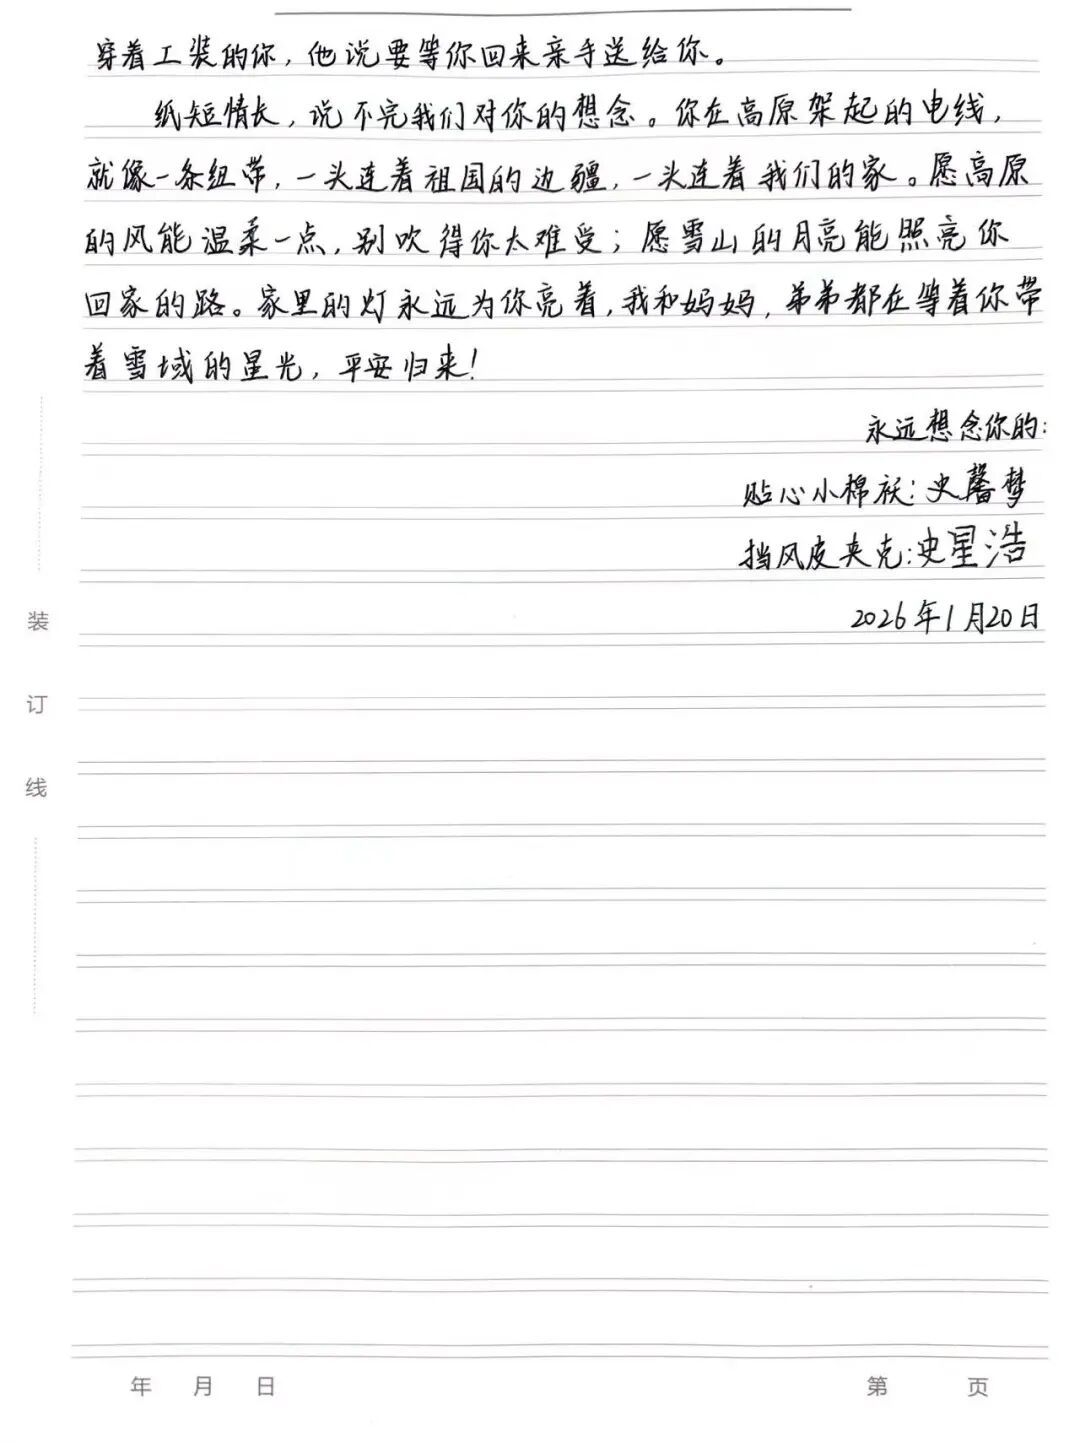 穿着工装的你，他说要等你回来亲手送给你。
纸短情长，说不完我们对你的想念。你在高原架起的电线，
就像一条纽带，一头连着祖国的边疆，一头连着我们的家。愿高原
的风能温柔一点，别吹得你太难受；愿雪山的月亮能照亮你
回家的路。家里的灯永远为你亮着，我和妈妈，弟弟都在等着你带
着雪域的星光，平安归来！
永远想念你的：
贴心小棉袄：史馨梦
挡风皮夹克：史星浩
2026年1月20日
装
订
线
年 月 日
第 页